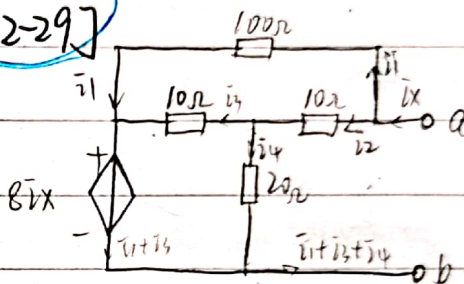 2-29]
100Ω
i1 i1
10Ω i3 10Ω ix
a
i2
i4
+
8ix 20Ω
-
i1+i3 i1+i3+i4
b